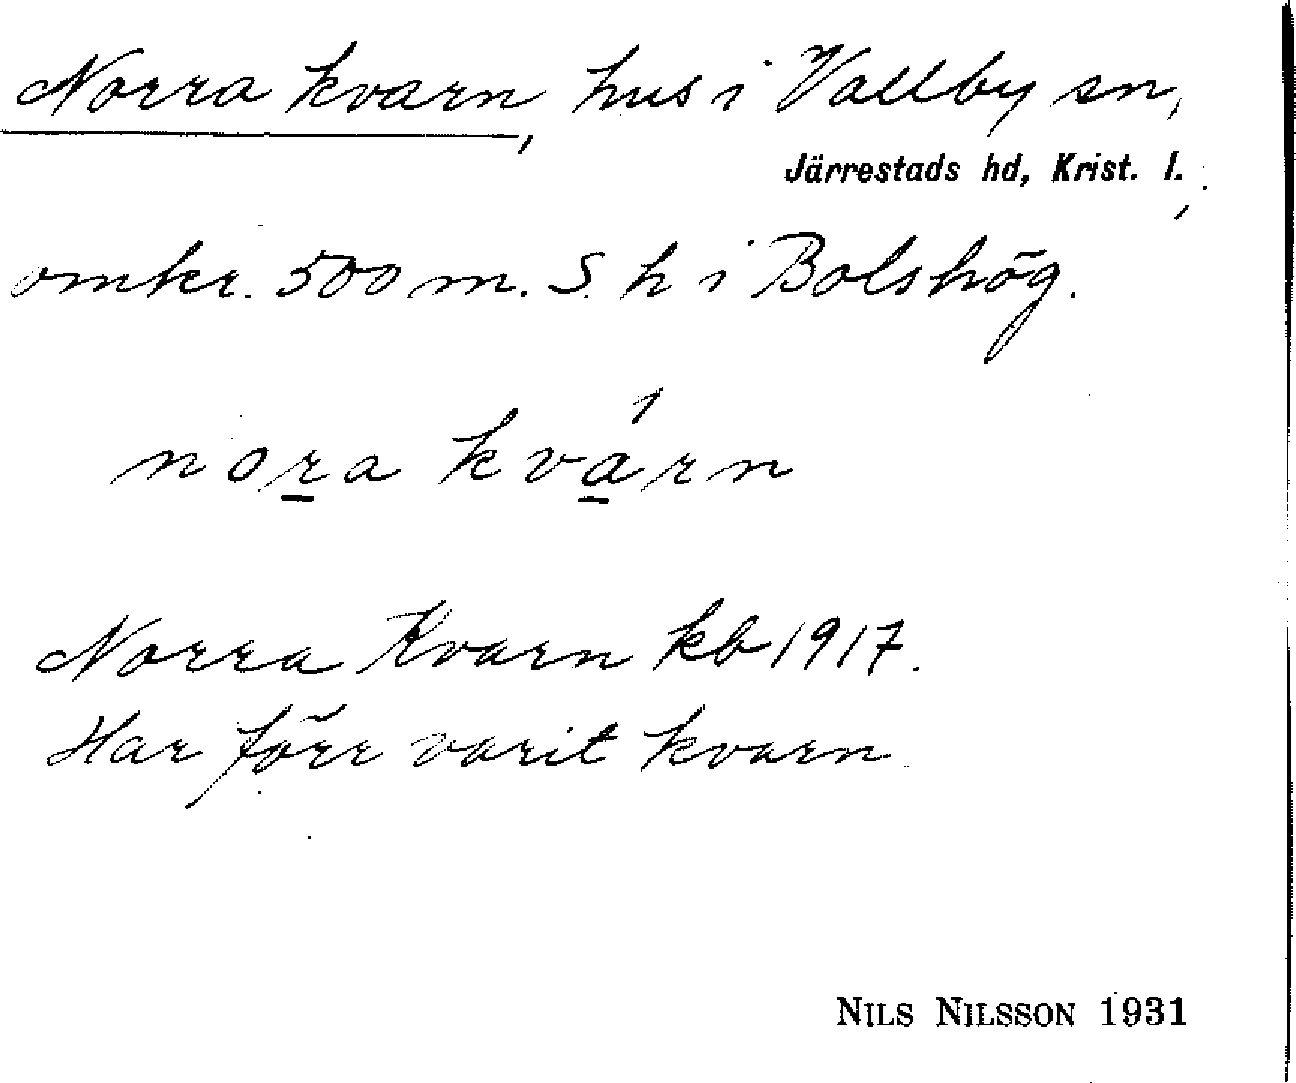 Norra kvarn, hus i Vallby sn,
Järrestads hd, Krist. l.,
omkr. 500 m. S. h i Bolshög.
nora kvárn
Norra Kvarn kb 1917.
Har förr varit kvarn
NILS NILSSON 1931